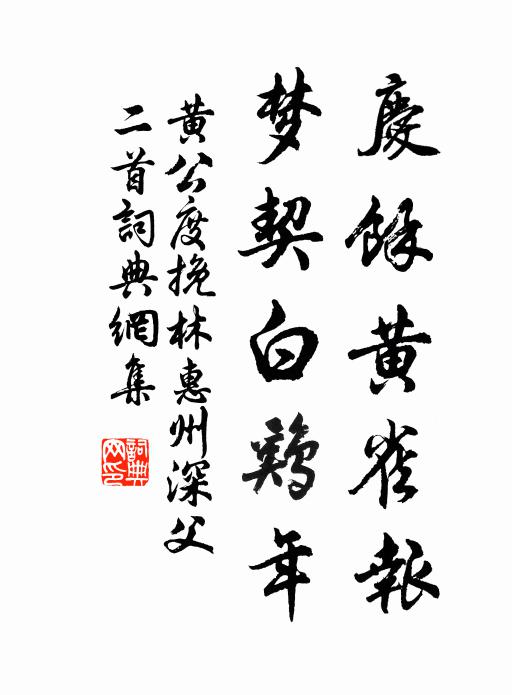 慶餘黃雀報
梦契白鷄年
黃公度挽林惠州深父
二首詞典網集
詞典网印